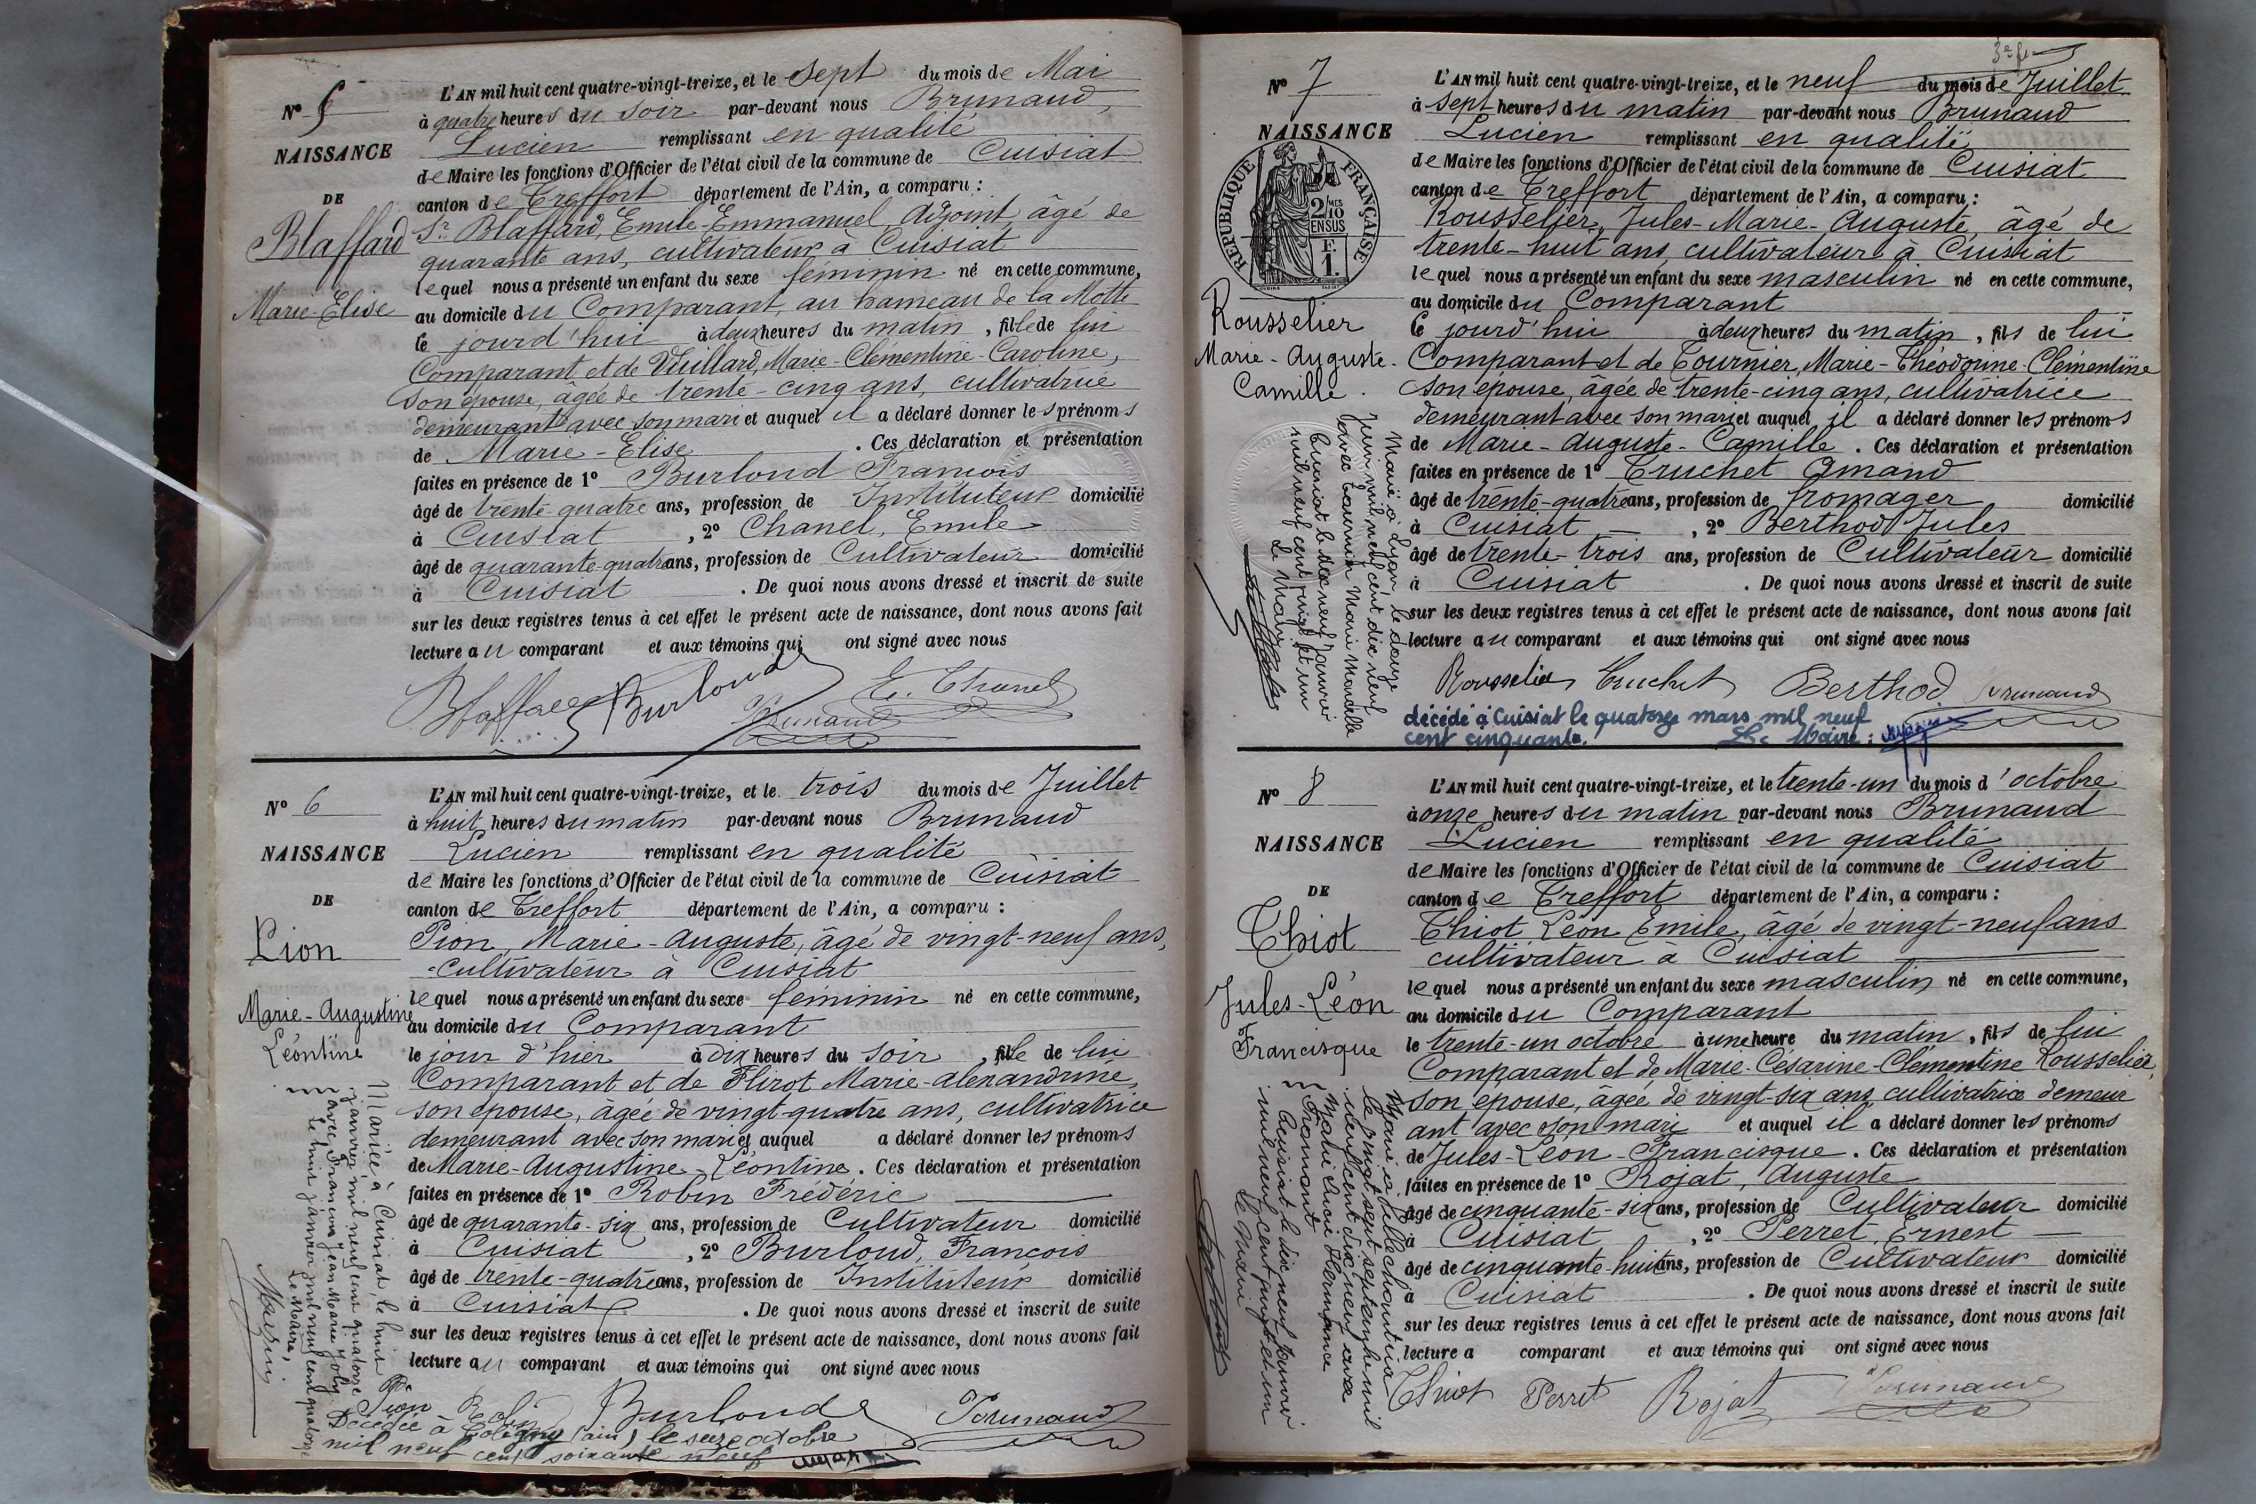 N° 5
NAISSANCE
DE
Blaffard
Marie-Elise
L'AN mil huit cent quatre-vingt-treize, et le sept du mois de Mai
à quatre heures du soir par-devant nous Brunaud,
Lucien remplissant en qualité
de Maire les fonctions d'Officier de l'état civil de la commune de Cuisiat
canton de Treffort département de l'Ain, a comparu :
Sr Blaffard, Emile-Emmanuel, Adjoint, âgé de
quarante ans, cultivateur à Cuisiat
lequel nous a présenté un enfant du sexe féminin né en cette commune,
au domicile du Comparant, au hameau de la Motte
le jourd'hui à deux heures du matin, fille de lui
Comparant et de Vuillard, Marie-Clémentine-Caroline,
son épouse, âgée de trente-cinq ans, cultivatrice
demeurant avec son mari et auquel il a déclaré donner les prénoms
de Marie-Elise. Ces déclaration et présentation
faites en présence de 1° Burloud François
âgé de trente-quatre ans, profession de Instituteur domicilié
à Cuisiat, 2° Chanel, Emile
âgé de quarante-quatre ans, profession de Cultivateur domicilié
à Cuisiat. De quoi nous avons dressé et inscrit de suite
sur les deux registres tenus à cet effet le présent acte de naissance, dont nous avons fait
lecture au comparant et aux témoins qui ont signé avec nous
Blaffard Burloud E. Chanel
Brunaud
N° 6
NAISSANCE
DE
Pion
Marie-Augustine
Léontine
L'AN mil huit cent quatre-vingt-treize, et le trois du mois de Juillet
à huit heures du matin par-devant nous Brunaud
Lucien remplissant en qualité
de Maire les fonctions d'Officier de l'état civil de la commune de Cuisiat
canton de Treffort département de l'Ain, a comparu :
Pion, Marie-Auguste, âgé de vingt-neuf ans,
cultivateur à Cuisiat
lequel nous a présenté un enfant du sexe féminin né en cette commune,
au domicile du Comparant
le jour d'hier à dix heures du soir, fille de lui
Comparant et de Flirot Marie-alexandrine,
son épouse, âgée de vingt-quatre ans, cultivatrice
demeurant avec son mari et auquel a déclaré donner les prénoms
de Marie-Augustine-Léontine. Ces déclaration et présentation
faites en présence de 1° Robin Frédéric
âgé de quarante-six ans, profession de Cultivateur domicilié
à Cuisiat, 2° Burloud, François
âgé de trente-quatre ans, profession de Instituteur domicilié
à Cuisiat. De quoi nous avons dressé et inscrit de suite
sur les deux registres tenus à cet effet le présent acte de naissance, dont nous avons fait
lecture au comparant et aux témoins qui ont signé avec nous
Mariée à Cuisiat, le huit
janvier mil neuf cent quatorze
avec François Jean Marie Joly
le huit janvier mil neuf cent quatorze
Le Maire,
Pion Robin Burloud Brunaud
Décédée à Coligny (Ain) le seize octobre
mil neuf cent soixante neuf
N° 7
NAISSANCE
RÉPUBLIQUE FRANÇAISE
2/10MES
EN SUS
F.
1.
Rousselier
Marie-Auguste-
Camille.
L'AN mil huit cent quatre-vingt-treize, et le neuf du mois de Juillet
à sept heures du matin par-devant nous Brunaud
Lucien remplissant en qualité
de Maire les fonctions d'Officier de l'état civil de la commune de Cuisiat
canton de Treffort département de l'Ain, a comparu :
Rousselier, Jules-Marie-Auguste, âgé de
trente-huit ans, cultivateur à Cuisiat
lequel nous a présenté un enfant du sexe masculin né en cette commune,
au domicile du Comparant
le jourd'hui à deux heures du matin, fils de lui
Comparant et de Tournier, Marie-Théodorine-Clémentine
son épouse, âgée de trente-cinq ans, cultivatrice
demeurant avec son mari et auquel il a déclaré donner les prénoms
de Marie-Auguste-Camille. Ces déclaration et présentation
faites en présence de 1° Truchet Amand
âgé de trente-quatre ans, profession de fromager domicilié
à Cuisiat, 2° Berthod Jules
âgé de trente-trois ans, profession de Cultivateur domicilié
à Cuisiat. De quoi nous avons dressé et inscrit de suite
sur les deux registres tenus à cet effet le présent acte de naissance, dont nous avons fait
lecture au comparant et aux témoins qui ont signé avec nous
Marié à Lyon le douze
Juin mil neuf cent dix neuf
avec Marie
Cuisiat le dix neuf Janvier
mil neuf cent vingt et un
Le Maire
Rousselier Truchet Berthod Brunaud
décédé à Cuisiat le quatorze mars mil neuf
cent cinquante. Le Maire :
N° 8
NAISSANCE
DE
Thiot
Jules-Léon
Francisque
L'AN mil huit cent quatre-vingt-treize, et le trente-un du mois d'octobre
à onze heures du matin par-devant nous Brunaud
Lucien remplissant en qualité
de Maire les fonctions d'Officier de l'état civil de la commune de Cuisiat
canton de Treffort département de l'Ain, a comparu :
Thiot Léon Emile, âgé de vingt-neuf ans
cultivateur à Cuisiat
lequel nous a présenté un enfant du sexe masculin né en cette commune,
au domicile du Comparant
le trente-un octobre à une heure du matin, fils de lui
Comparant et de Marie-Césarine-Clémentine Rousselier,
son épouse, âgée de vingt-six ans, cultivatrice demeur
ant avec son mari et auquel il a déclaré donner les prénoms
de Jules-Léon-Francisque. Ces déclaration et présentation
faites en présence de 1° Rojat, Auguste
âgé de cinquante-six ans, profession de Cultivateur domicilié
à Cuisiat, 2° Perret, Ernest
âgé de cinquante-huit ans, profession de Cultivateur domicilié
à Cuisiat. De quoi nous avons dressé et inscrit de suite
sur les deux registres tenus à cet effet le présent acte de naissance, dont nous avons fait
lecture a comparant et aux témoins qui ont signé avec nous
Marié à
le vingt sept septembre mil
neuf cent dix neuf avec
Marie Lucie Hermance
Cuisiat le dix neuf Janvier
mil neuf cent vingt et un
Le Maire
Thiot Perret Rojat Brunaud